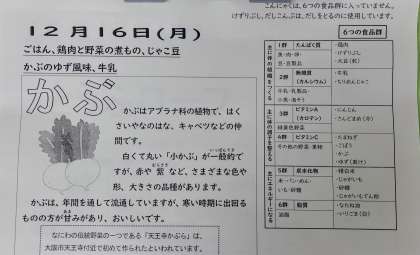 こんにゃくは、6つの食品群に入っていません。
けずりぶし、だしこんぶは、だしをとるのに使用しています。
12月16日(月)
ごはん、鶏肉と野菜の煮もの、じゃこ豆
かぶのゆず風味、牛乳
かぶ
かぶはアブラナ科の植物で、はく
さいやなのはな、キャベツなどの仲
間です。
白くて丸い「小かぶ」が一般的で
いっぱんてき
すが、赤や 紫 など、さまざまな色や
むらさき
形、大きさの品種があります。
かぶは、年間を通して流通していますが、寒い時期に出回る
ものの方が甘みがあり、おいしいです。
あま
なにわの伝統野菜の一つである「天王寺かぶら」は、
大阪市天王寺付近で初めて作られたといわれています。
6つの食品群
主に体の組織をつくる
1群 たんぱく質
魚・肉・卵・
豆・豆製品
・鶏肉
・けずりぶし
・大豆(乾)
2群 無機質
(カルシウム)
牛乳・乳製品・
小魚・海そう
・牛乳
・ちりめんじゃこ
主に体の調子を整える
3群 ビタミンA
緑黄色野菜
・にんじん
・さんどまめ(冷)
4群 ビタミンC
その他の野菜・果物
・たまねぎ
・ごぼう
・かぶ
・ゆず(果汁)
主にエネルギーになる
5群 炭水化物
米・パン・めん・
いも・砂糖
・精白米
・じゃがいも
・砂糖
・じゃがいもでん粉
6群 脂質
油脂
・なたね油
・いりごま(白)